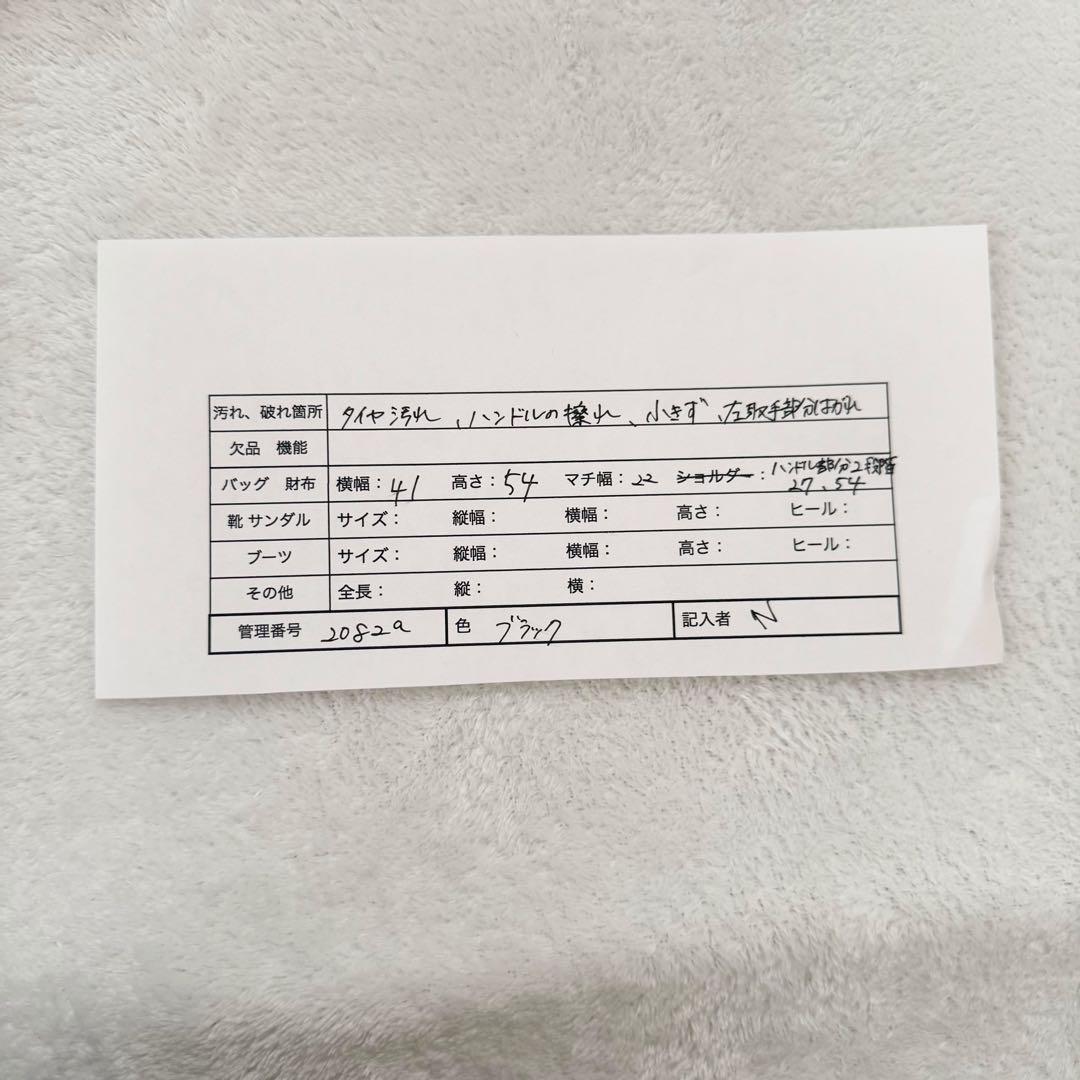 汚れ、破れ箇所 タイヤ汚れ、ハンドルの擦れ、小きず、左取手部分はがれ
欠品 機能
バッグ 財布 横幅：41 高さ：54 マチ幅：22 ショルダー：ハンドル部分2段階
27、54
靴 サンダル サイズ： 縦幅： 横幅： 高さ： ヒール：
ブーツ サイズ： 縦幅： 横幅： 高さ： ヒール：
その他 全長： 縦： 横：
管理番号 2082a 色 ブラック 記入者 N